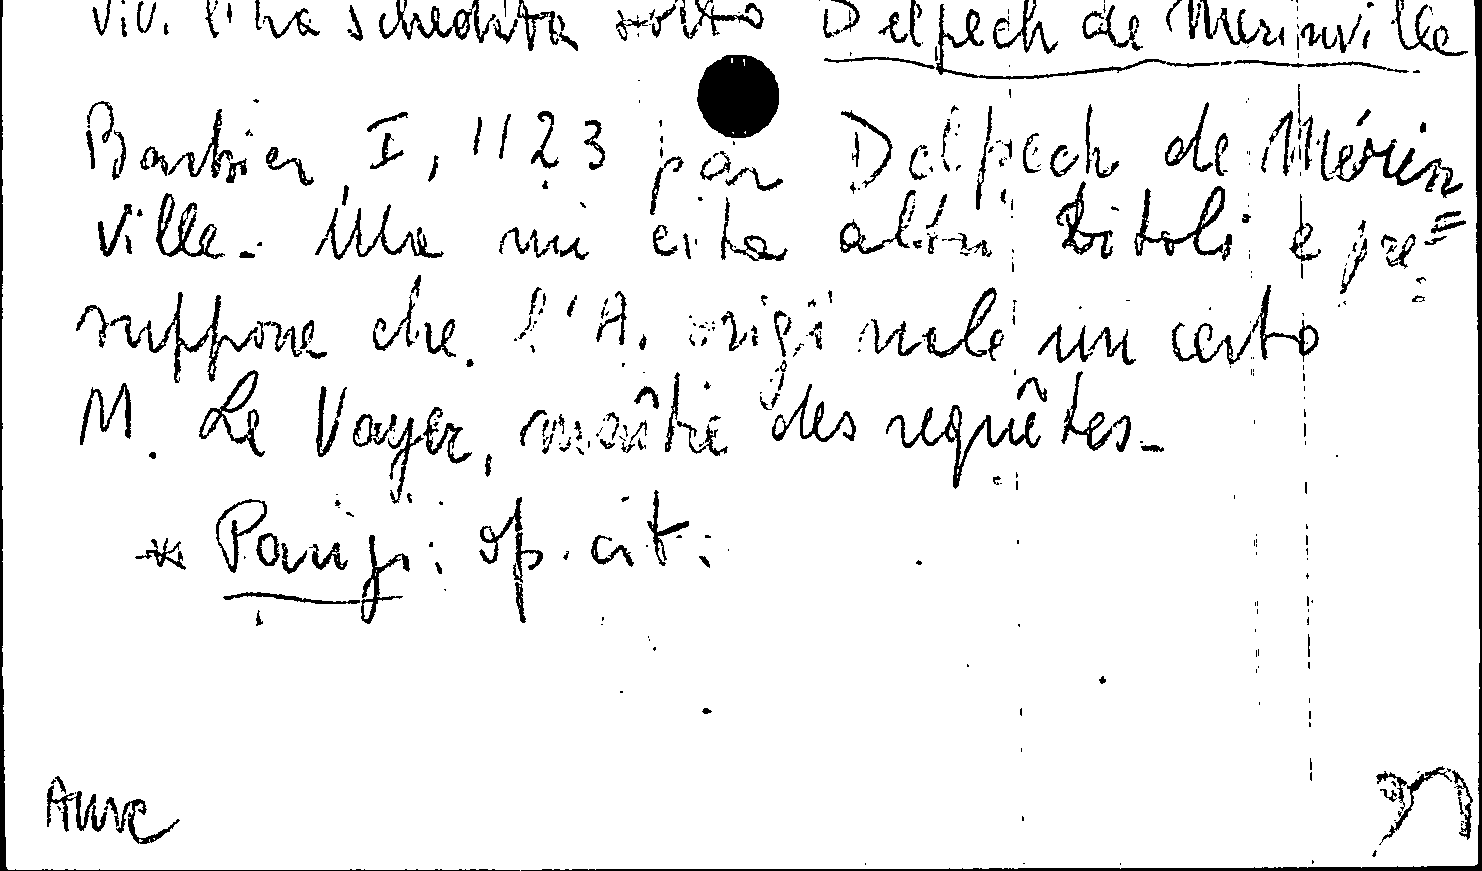 viv. l'ha schedata sotto Delpech de Merinville
Barbier I, 1123 par Delpech de Mérin=
ville. Ma mi cita altri titoli e pre=
suppone che l'A. originale un certo
M. Le Vayer, maître des requêtes.
* Parigi: op. cit.